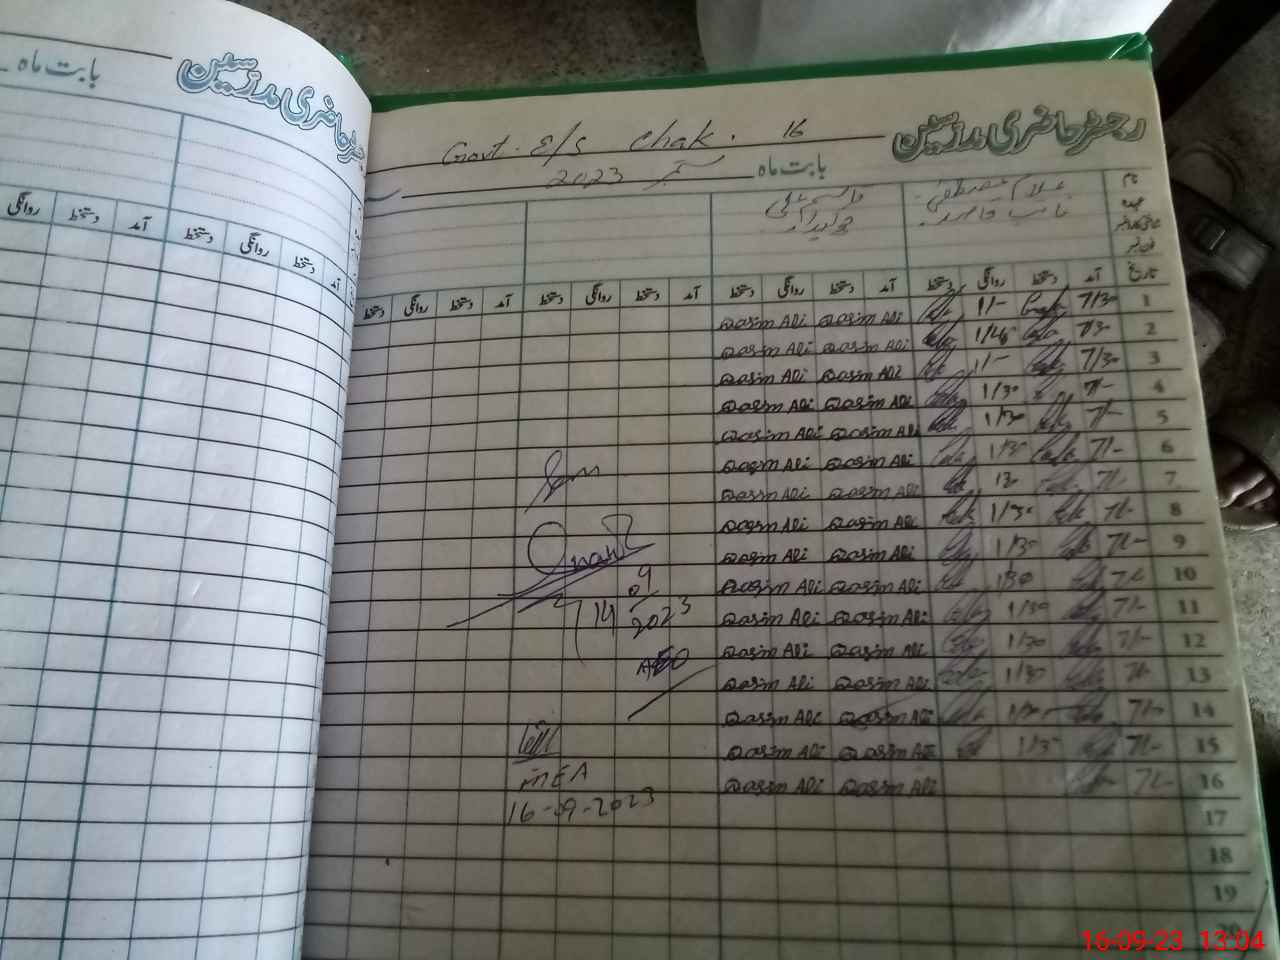 رجسٹر حاضری مدرسین
بابت ماہ
رجسٹر حاضری مدرسین
Govt. E/S Chak. 16
بابت ماہ ستمبر 2023
نام غلام مصطفیٰ قاسم علی
عہدہ نائب قاصد چوکیدار
تاریخ آمد دستخط روانگی دستخط آمد دستخط روانگی دستخط آمد دستخط روانگی دستخط آمد دستخط روانگی دستخط
آمد دستخط روانگی دستخط آمد دستخط روانگی
1 7/30 1/- Qasim Ali Qasim Ali
2 7/30 1/45 Qasim Ali Qasim Ali
3 7/30 1/- Qasim Ali Qasim Ali
4 7/- 1/30 Qasim Ali Qasim Ali
5 7/- 1/30 Qasim Ali Qasim Ali
6 7/- 1/30 Qasim Ali Qasim Ali
7 7/- 130 Qasim Ali Qasim Ali
8 7/- 1/30 Qasim Ali Qasim Ali
9 7/- 1/30 Qasim Ali Qasim Ali
10 7/- 1/30 Qasim Ali Qasim Ali
11 7/- 1/30 Qasim Ali Qasim Ali
12 7/- 1/30 Qasim Ali Qasim Ali
13 7/- 1/30 Qasim Ali Qasim Ali
14 7/- 1/30 Qasim Ali Qasim Ali
15 7/- 1/30 Qasim Ali Qasim Ali
16 7/- Qasim Ali Qasim Ali
17
18
19
20
14 09
2023
AEO
MEA
16-09-2023
16-09-23 13:04